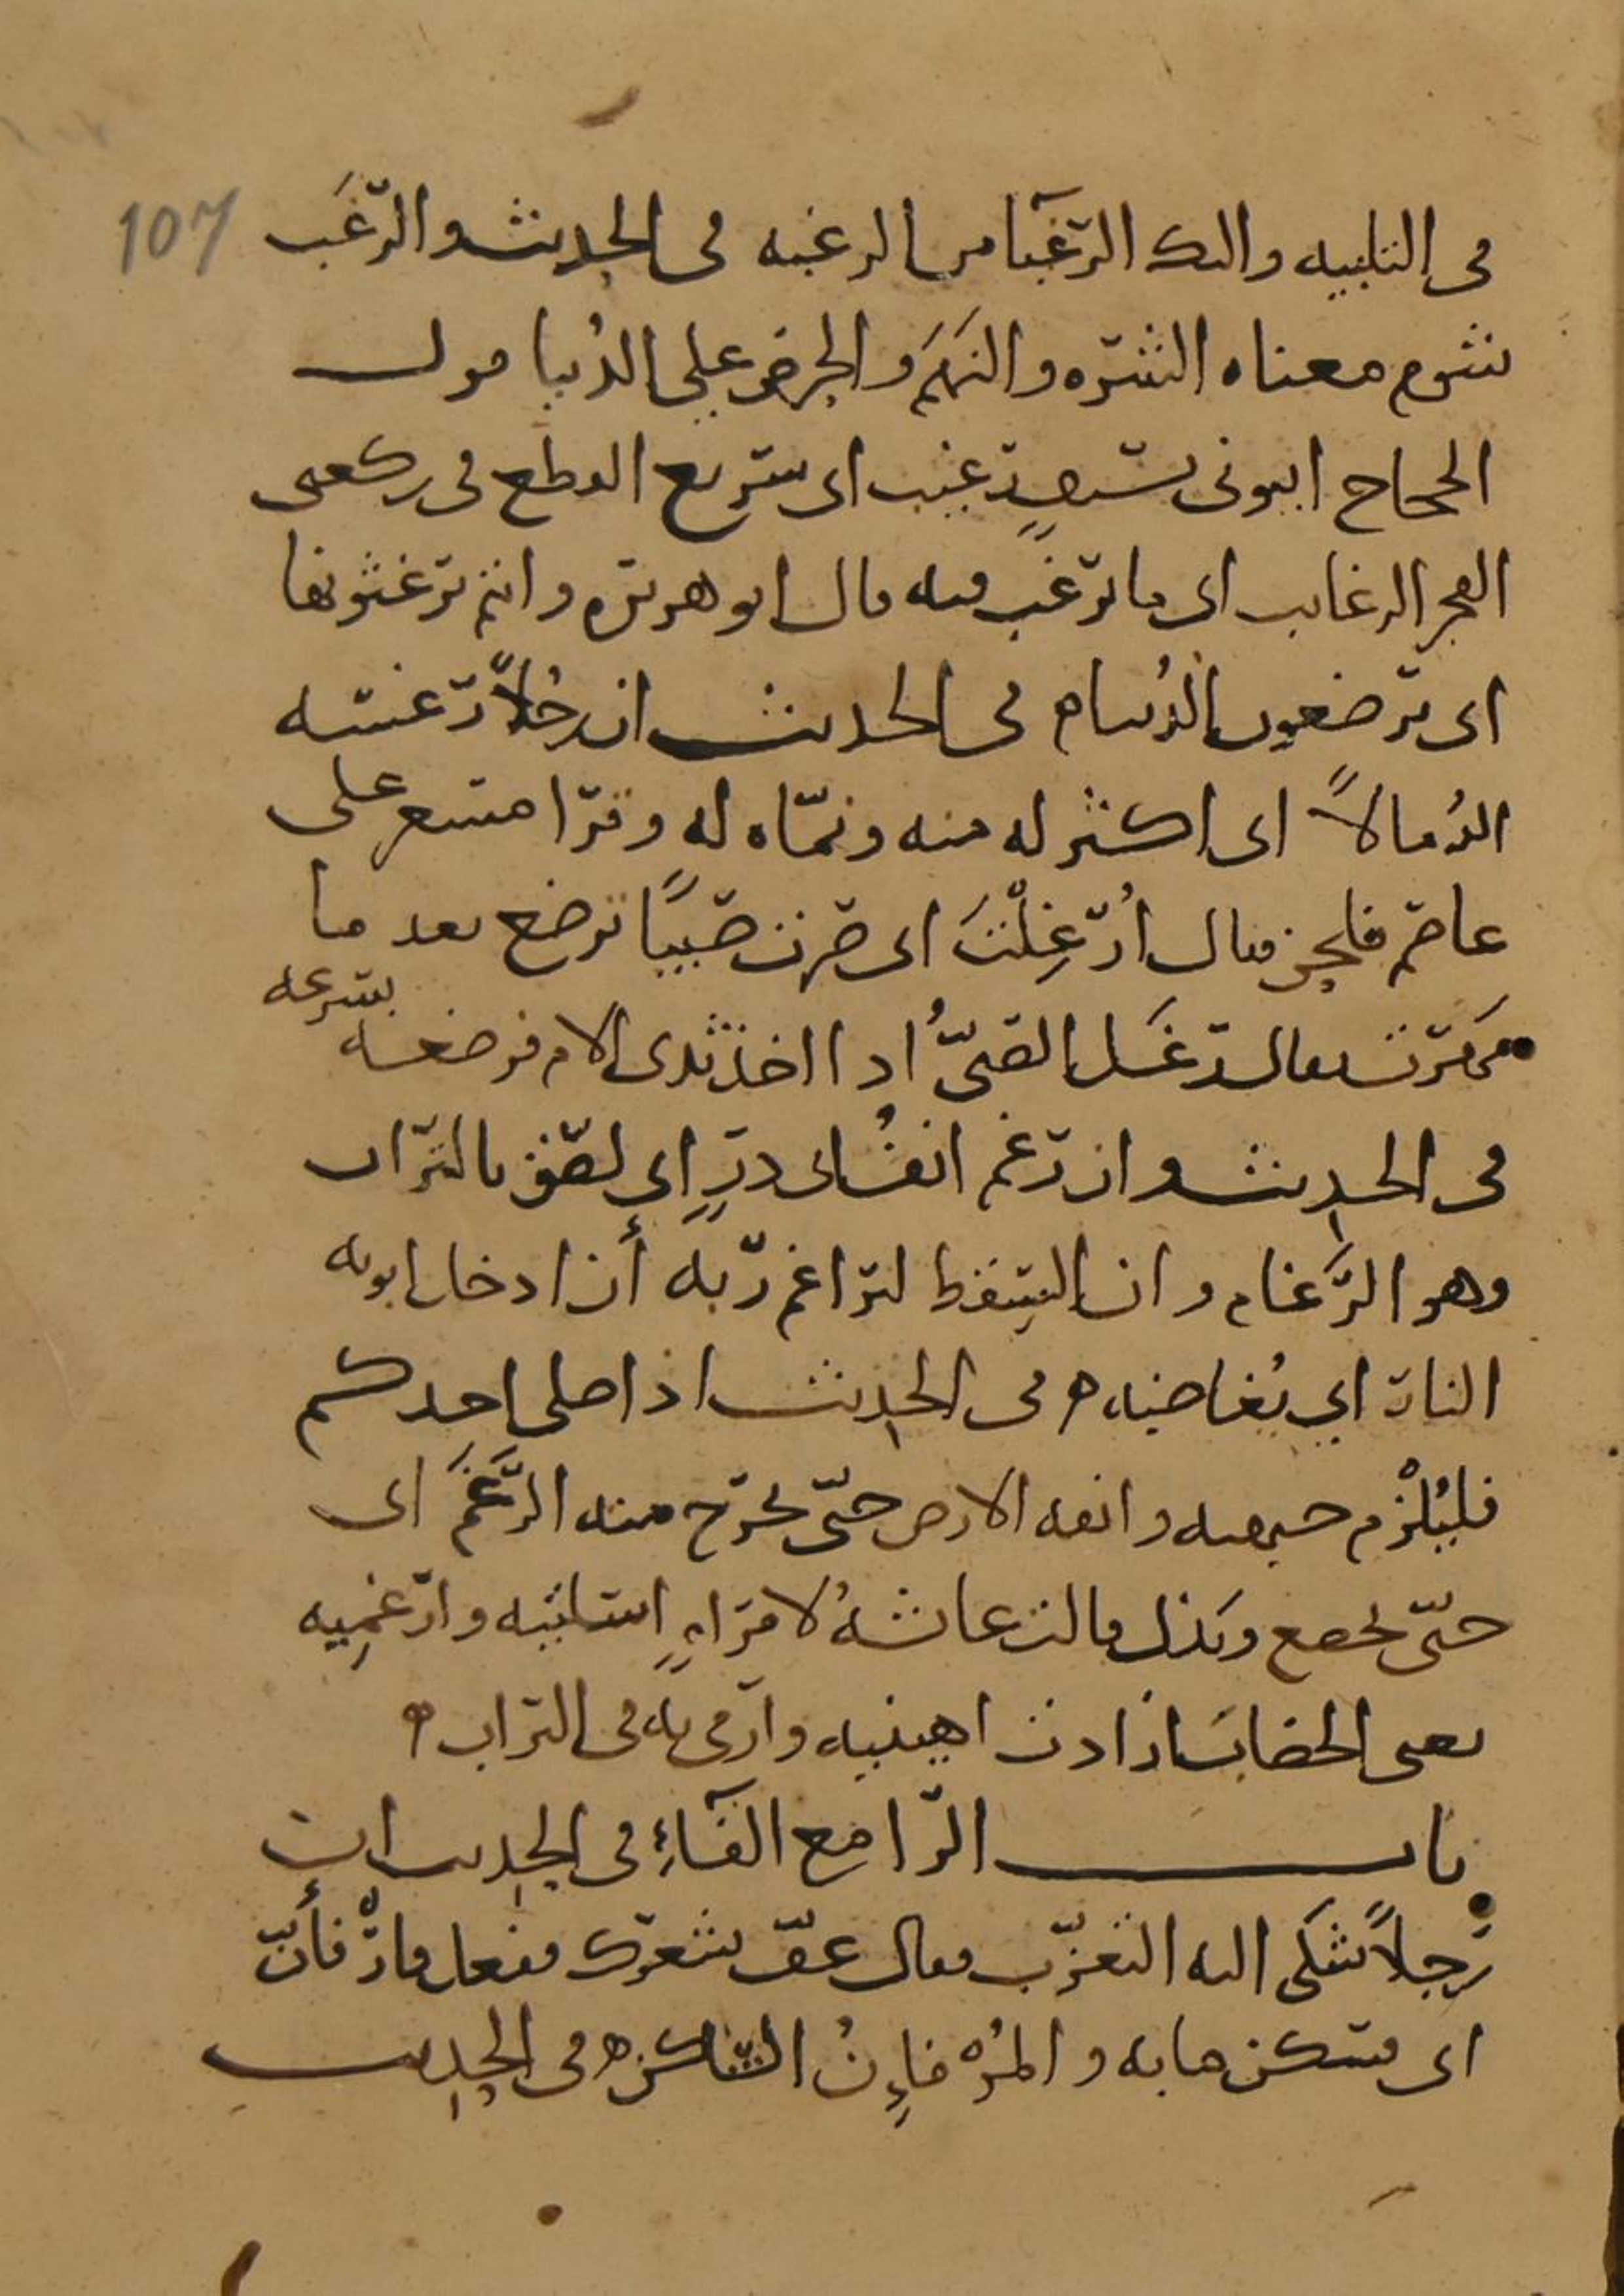 107
فى التلبيه واليك الرَّغبَآ من الرغبه فى الحديث والرَّغَب
شوم معناه الشره والنَهَم والحرص على الدُنيا قول
الحجاج ايتونى بسيف رغيب اى سريع القطع فى ركعتى
الفجر الرغايب اى ما يرغب فيه قال ابو هريره وانتم ترغثونها
اى ترضعون الدُنيا ه فى الحديث ان رجُلاً رغسه
الله مالاً اى اكثر له منه ونمّاه له وقرا مسعر على
عاصم فلحن فقال أرَغِلْتَ اى صرت صَبيًا ترضع بعد ما
مَهَرتَ يقال رغَل الصبىُّ اذا اخذ ثدى الام فرضعه بسرعه
فى الحديث وان رغم انف ابى درٍ اى لصق بالتراب
وهو الرَّغام وان السقط لتراغم ربه أن ادخل ابويه
النار اي يُغاضبه ه فى الحديث اذا صلى احدكم
فليُلْزم جبهته وانفه الارض حتّى يخرج منه الرَّغَمَ اى
حتّى يخضع ويذل قالت عائشهُ لامراهٍ اسلتيه وارغمِيه
يعنى الخضابَ ارادت اهينيه وارمى به فى التراب ه
باب الرا مع الفآءِ فى الحديث ان
رَجلاً شكى اليه التعزّب فقال عفّ شعرك ففعل فارْفأنّ
اى فسكن ما به والمُرْفاِنُ الساكن ه فى الحديث